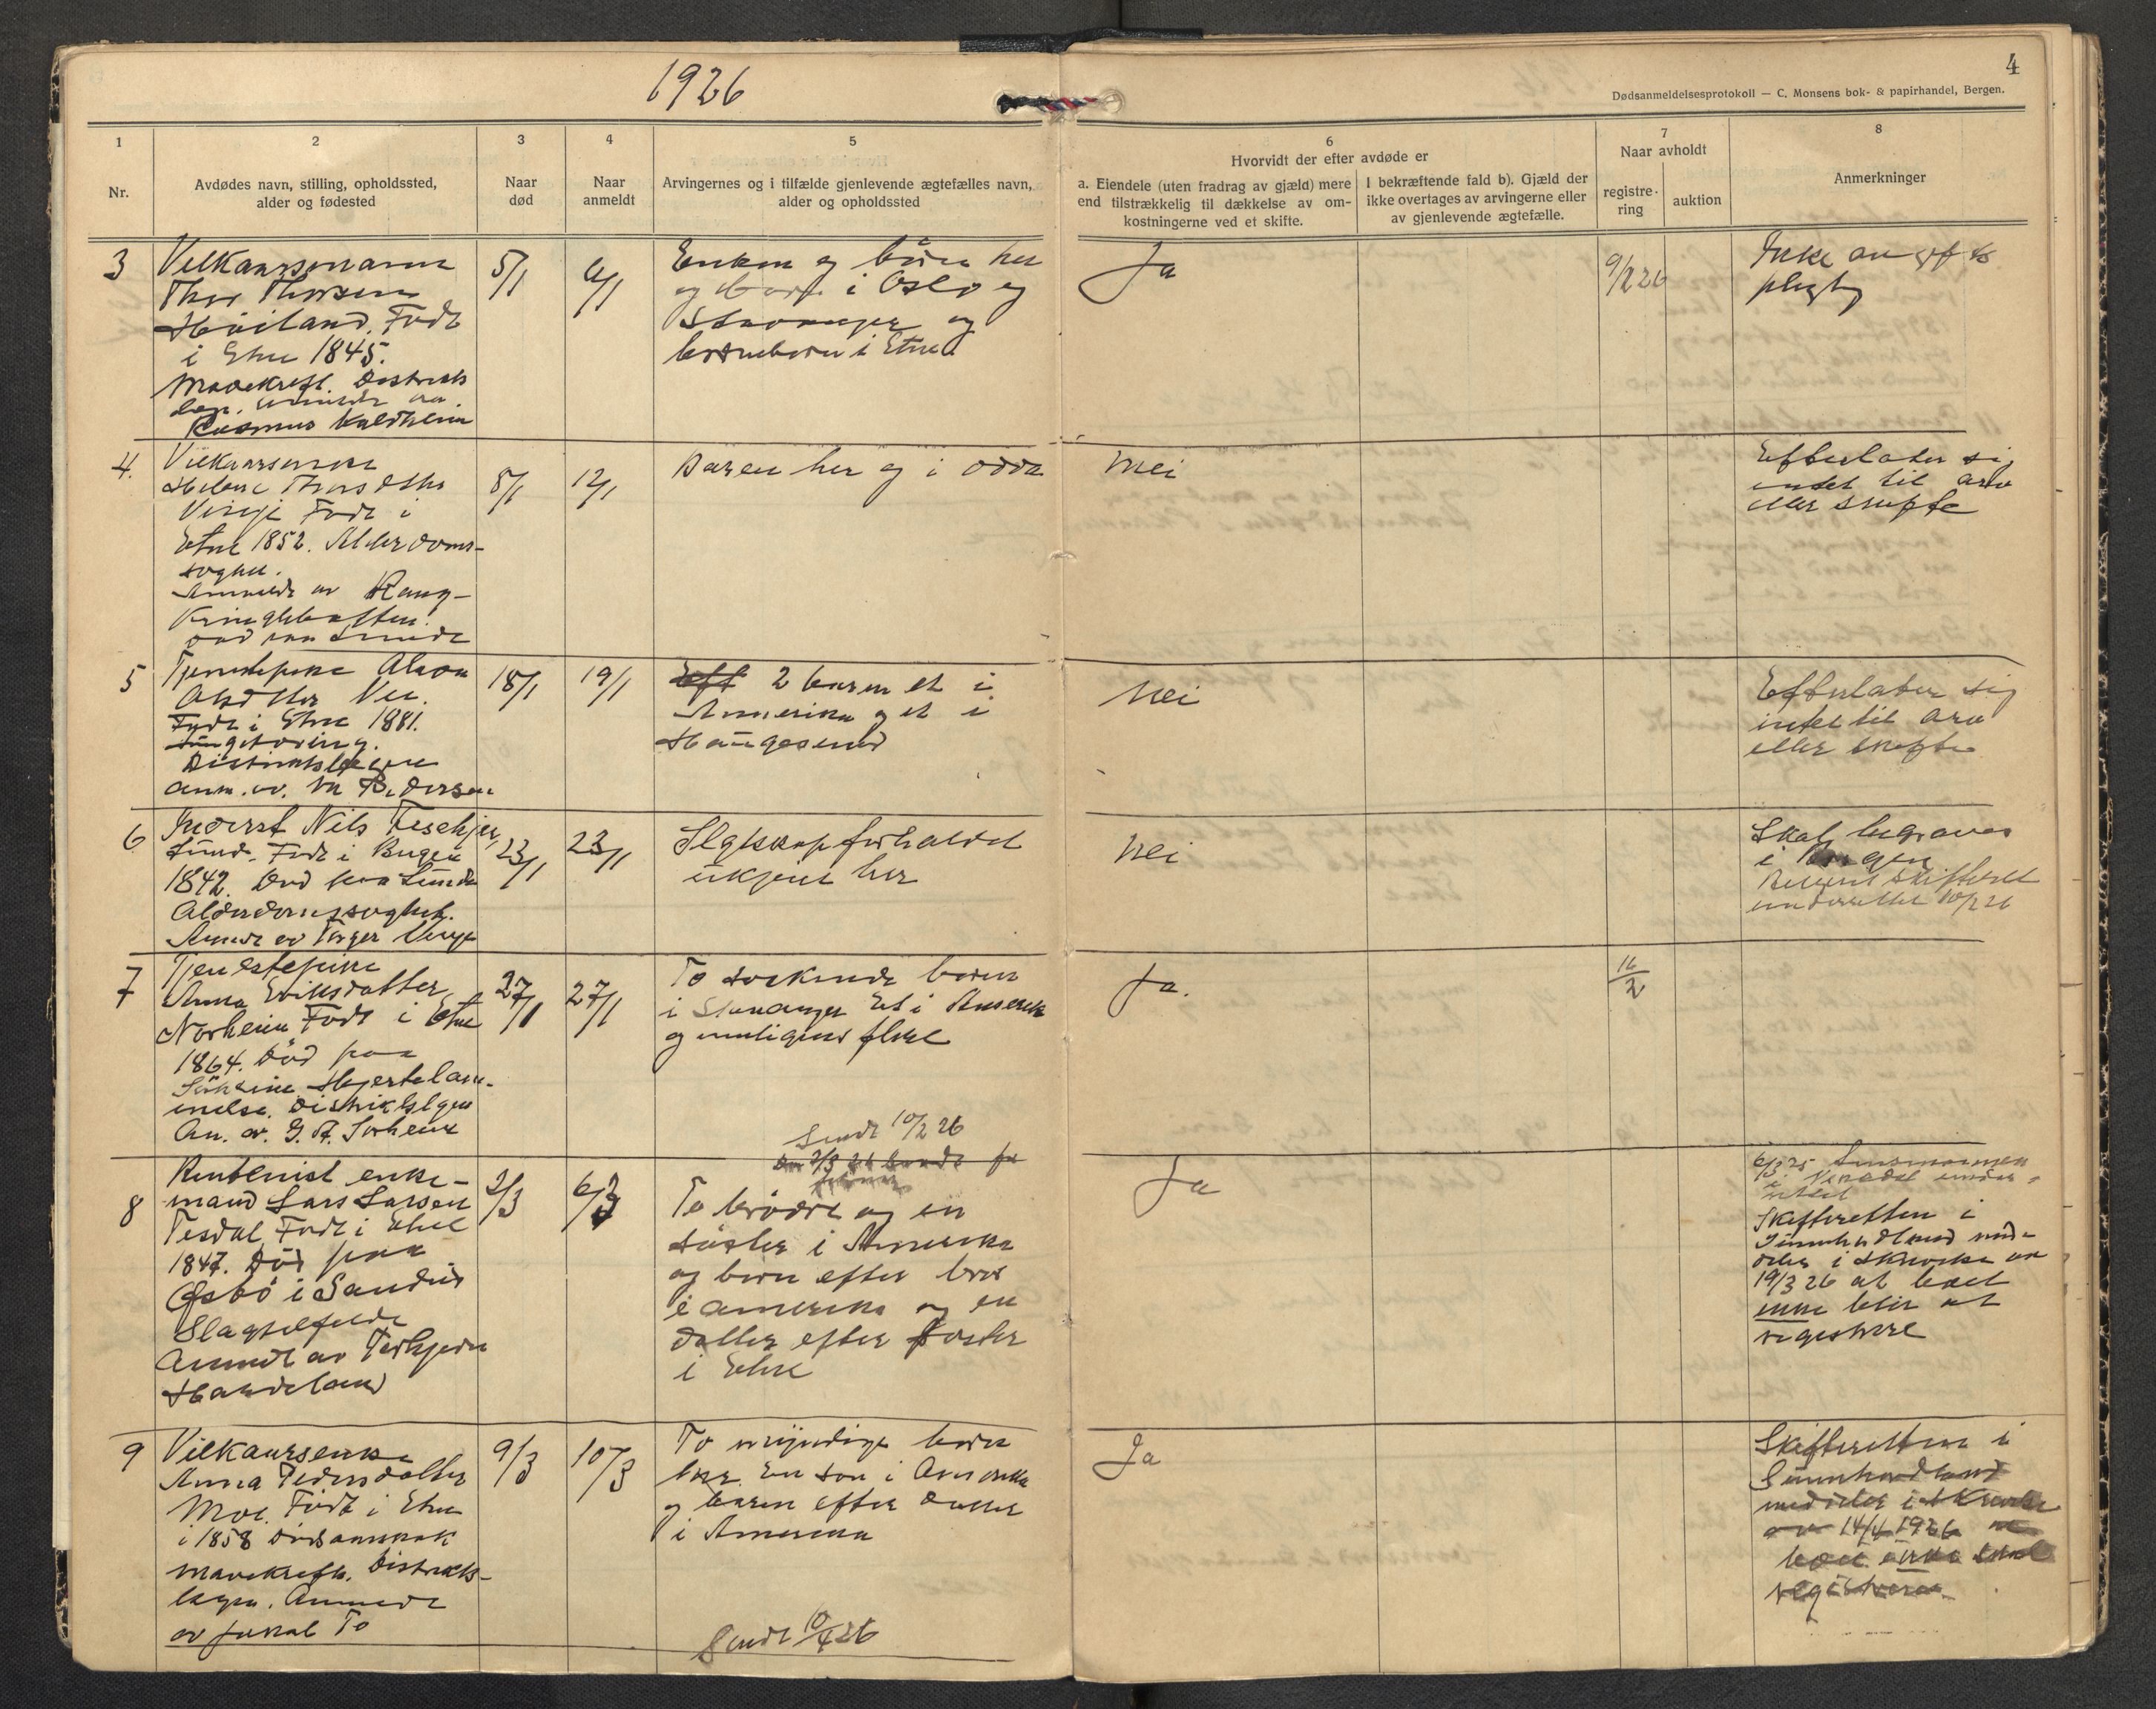 1926
4
Dødsanmeldelsesprotokoll — C. Monsens bok- & papirhandel, Bergen.
1
2
3
4
5
6
7
8
Nr.
Avdødes navn, stilling, opholdssted,
alder og fødested
Naar
død
Naar
anmeldt
Arvingernes og i tilfælde gjenlevende ægtefælles navn,
alder og opholdssted
Hvorvidt der efter avdøde er
a. Eiendele (uten fradrag av gjæld) mere
end tilstrækkelig til dækkelse av om-
kostningerne ved et skifte.
I bekræftende fald b). Gjæld der
ikke overtages av arvingerne eller
av gjenlevende ægtefælle.
Naar avholdt
registre-
ring
auktion
Anmerkninger
3
Vilkaarsmann
Thor Thorsen
Håiland. Født
i Etne 1845.
Mavekreft. Distrikts
Rasmus Kaldheim
5/1
6/1
Enken og børn her
og i Oslo og
Stavanger og
barnebørn i Etne
Ja
9/2 26
Ikke avgifts
pligtig
4.
Helene Thorsdtr
Født i
Etne 1852. Alderdoms-
Anmeldt av
8/1
12/1
Barn her og i Odda
Nei
Efterlater sig
intet til arv
eller skifte
5
Tjenestepike
Født i Etne 1881.
Distriktslægen
anm. av. Pedersen
18/1
19/1
2 barn et i
Amerika og et i
Haugesund
Nei
Efterlater sig
intet til arv
eller skifte
6
Inderst Nils
Født i Bergen
1842. Død paa Sunde
Anmeldt av Torger
23/1
23/1
Slgtskapsforholdet
ukjent her
Nei
Skal begraves
i Bergen
Bergens Skifteret
underrettet 10/2 26
7
Tjenestepike
Anna Eriksdatter
Norheim Født i Etne
1864. Død paa
Hjertelam-
melse. Distriktslgen
An. av. G. A.
27/1
27/1
To søskende børn
i Stavanger Et i Amerika
og muligens flere
Ja.
16/2
Sendt 10/2 26
8
enke-
mand Lars Larsen
Tesdal Født i Etne
1847. Død paa
Øsbø i Sandeid
Slagtilfelde
Anmeldt av Torbjørn
Handeland
2/3
6/3
To brødre og en
søster i Amerika
og børn efter bror
i Amerika og en
datter efter søster
i Etne
Ja
Skifteretten i
Sunnhordland med-
deler i skrivelse av
19/3 26 at boet
ikke blir at
registrere
9
Vilkaarsenke
Anna Pedersdatter
Moe. Født i Etne
i 1858 Dødsaarsak
Mavekreft. Distrikts-
lægen. Anmeldt
av Jakob To
9/3
10/3
To myndige børn
her. En søn i Amerika
og barn efter datter
i Amerika
Sendt 10/4 26
Ja
Skifteretten i
Sunnhordland
meddeler i skrivelse
av 14/4 1926 at
boet ikke skal
registreres